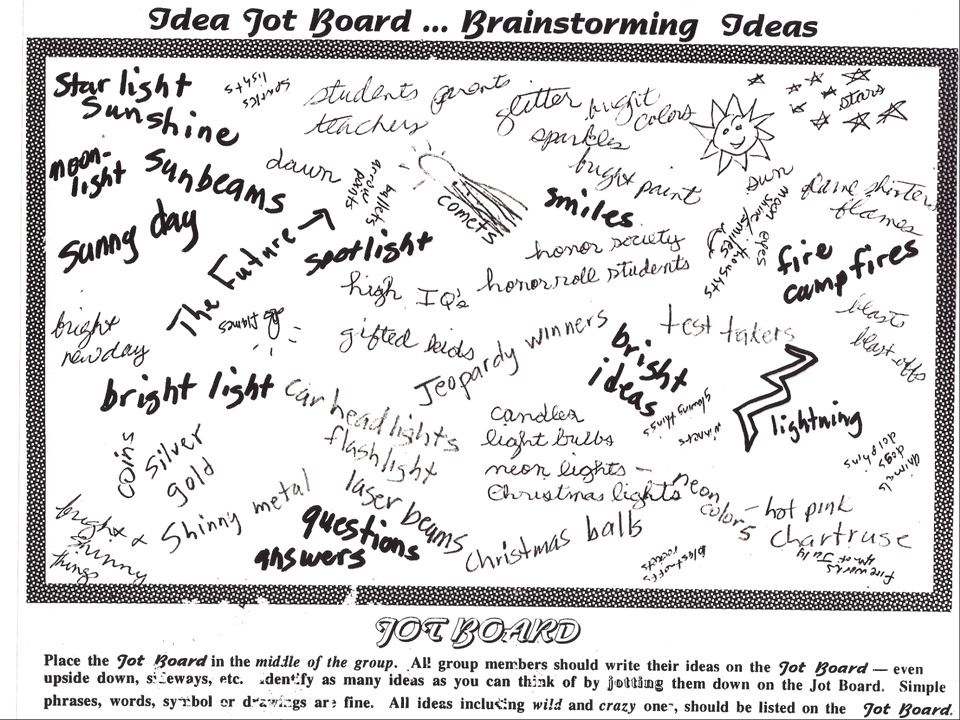 Idea Jot Board ... Brainstorming Ideas
Star light
Sunshine
sparkles
lights
students parents
teachers
glitter bright
colors
sparkles
bright paint
stars
moon-
light
Sunbeams
dawn
comets
smiles
sun
flames
sunny day
The Future
spotlight
honor society
honor roll students
moon
shine
eyes
families
thoughts
fire
camp fires
high IQ's
gifted kids
Jeopardy winners
test takers
blasts
blast offs
bright
new day
bright
ideas
bright light
car headlights
flashlight
glowing things
winners
lightning
candles
light bulbs
neon lights -
Christmas lights
coins
silver
gold
Shinny metal
laser beams
neon
colors
- hot pink
chartruse
animals
dogs
dolphins
bright &
shinny
things
questions
answers
Christmas balls
blastoffs
rockets
fireworks
4th of July
JOT BOARD
Place the Jot Board in the middle of the group. All group members should write their ideas on the Jot Board — even
upside down, sideways, etc. Identify as many ideas as you can think of by jotting them down on the Jot Board. Simple
phrases, words, symbol or drawings are fine. All ideas including wild and crazy one, should be listed on the Jot Board.